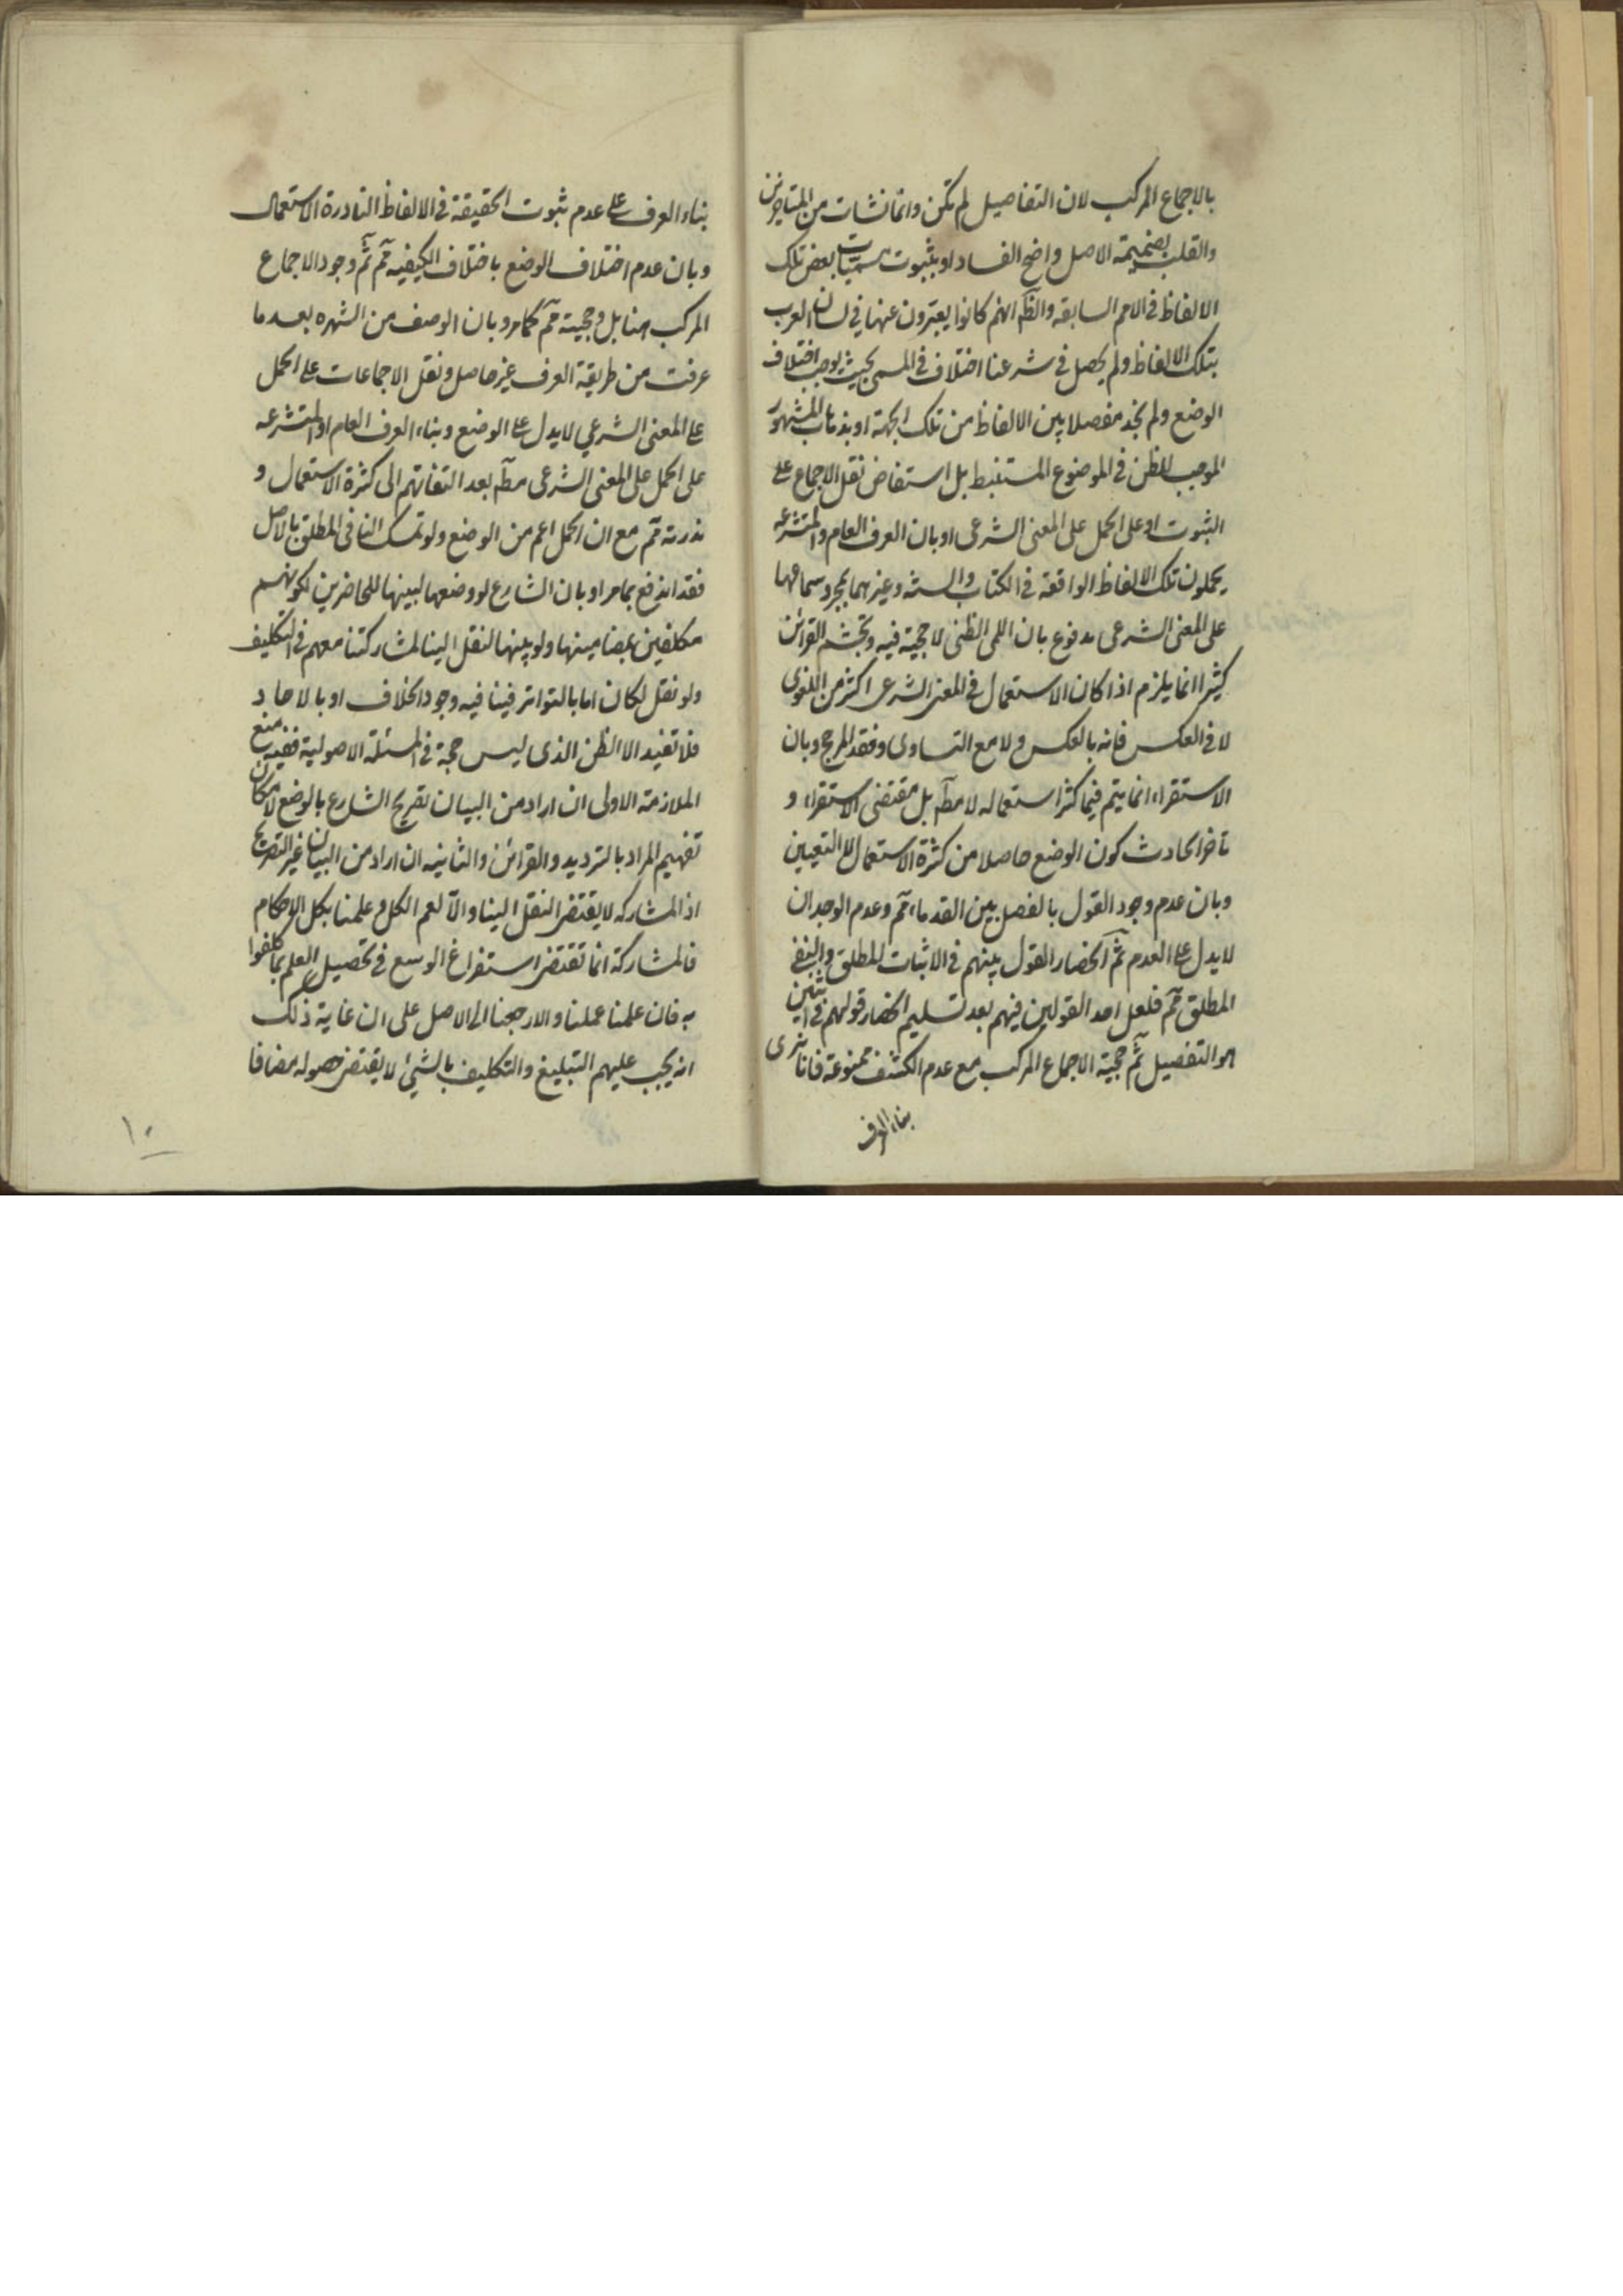 بالاجماع المركب لان التفاصيل لم تكن وانما نشات من المتاخرين
والقلب بضميمة الاصل واضح الفساد او بثبوت مسميات بعض تلك
الالفاظ في الامم السابقه والظآ انهم كانوا يعبرون عنها في لسان العرب
بتلك الالفاظ ولم يحصل في شرعنا اختلاف في المسمى بحيث يوجب اختلاف
الوضع ولم نجد مفصلا بين الالفاظ من تلك الجهة او بذهاب المشهور
الموجب للظن في الموضوع المستنبط بل استفاض نقل الاجماع على
الثبوت او على الحمل على المعنى الشرعى او بان العرف العام والمتشرعه
يحملون تلك الالفاظ الواقعة في الكتاب والسنة وغيرهما بمجرد سماعها
على المعنى الشرعى مدفوع بان اللمى الظنى لا حجية فيه وتجشم القرائن
كثيرا انما يلزم اذا كان الاستعمال في المعنى الشرعى اكثر من اللغوى
لا في العكس فانه بالعكس ولا مع التساوى وفقد المرجح وبان
الاستقراء انما يتم فيما كثر استعماله لا مطآ بل مقتضى الاستقراء و
تاخر الحادث كون الوضع حاصلا من كثرة الاستعمال لا التعيين
وبان عدم وجود القول بالفصل بين القدماء ثمآ وعدم الوجدان
لا يدل على العدم ثمآ انحصار القول بينهم في الاثبات المطلق والنفى
المطلق ثمآ فلعل احد القولين فيهم بعد تسليم انحصار قولهم في اثنين
هو التفصيل ثمآ حجية الاجماع المركب مع عدم الكشف ممنوعة فانا نرى
بناء العرف
بناء العرف على عدم ثبوت الحقيقة في الالفاظ النادرة الاستعمال
وبان عدم اختلاف الوضع باختلاف الكيفيه ثمآ ثمآ وجود الاجماع
المركب هنا بل وحجيته ثمآ كما مر وبان الوصف من الشهره بعد ما
عرفت من طريقة العرف غير حاصل ونقل الاجماعات على الحمل
على المعنى الشرعي لا يدل على الوضع وبناء العرف العام او المتشرعه
على الحمل على المعنى الشرعى مطآ بعد التفاتهم الى كثرة الاستعمال و
ندرته ثمآ مع ان الحمل اعم من الوضع ولو تمسك النافى المطلق بالاصل
فقد اندفع بما مر او بان الشارع لو وضعها لبينها للحاضرين لكونهم
مكلفين بمضامينها ولو بينها لنقل الينا لمشاركتنا معهم في التكليف
ولو نقل لكان اما بالتواتر فينافيه وجود الخلاف او بالاحاد
فلا تفيد الا الظن الذى ليس حجة في المسئلة الاصولية ففيه منع
الملازمة الاولى ان اراد من البيان تصريح الشارع بالوضع لامكان
تفهيم المراد بالترديد والقرائن والثانيه ان اراد من البيان غير التصريح
اذ المشاركه لا يقتضى النقل الينا والا لعم الكل وعلمنا بكل الاحكام
فالمشاركة انما تقتضى استفراغ الوسع في تحصيل العلم بما كلفوا
به فان علمنا عملنا والا رجعنا الى الاصل على ان غاية ذلك
انه يجب عليهم التبليغ والتكليف بالشئ لا يقتضى حصوله مضافا
١٠